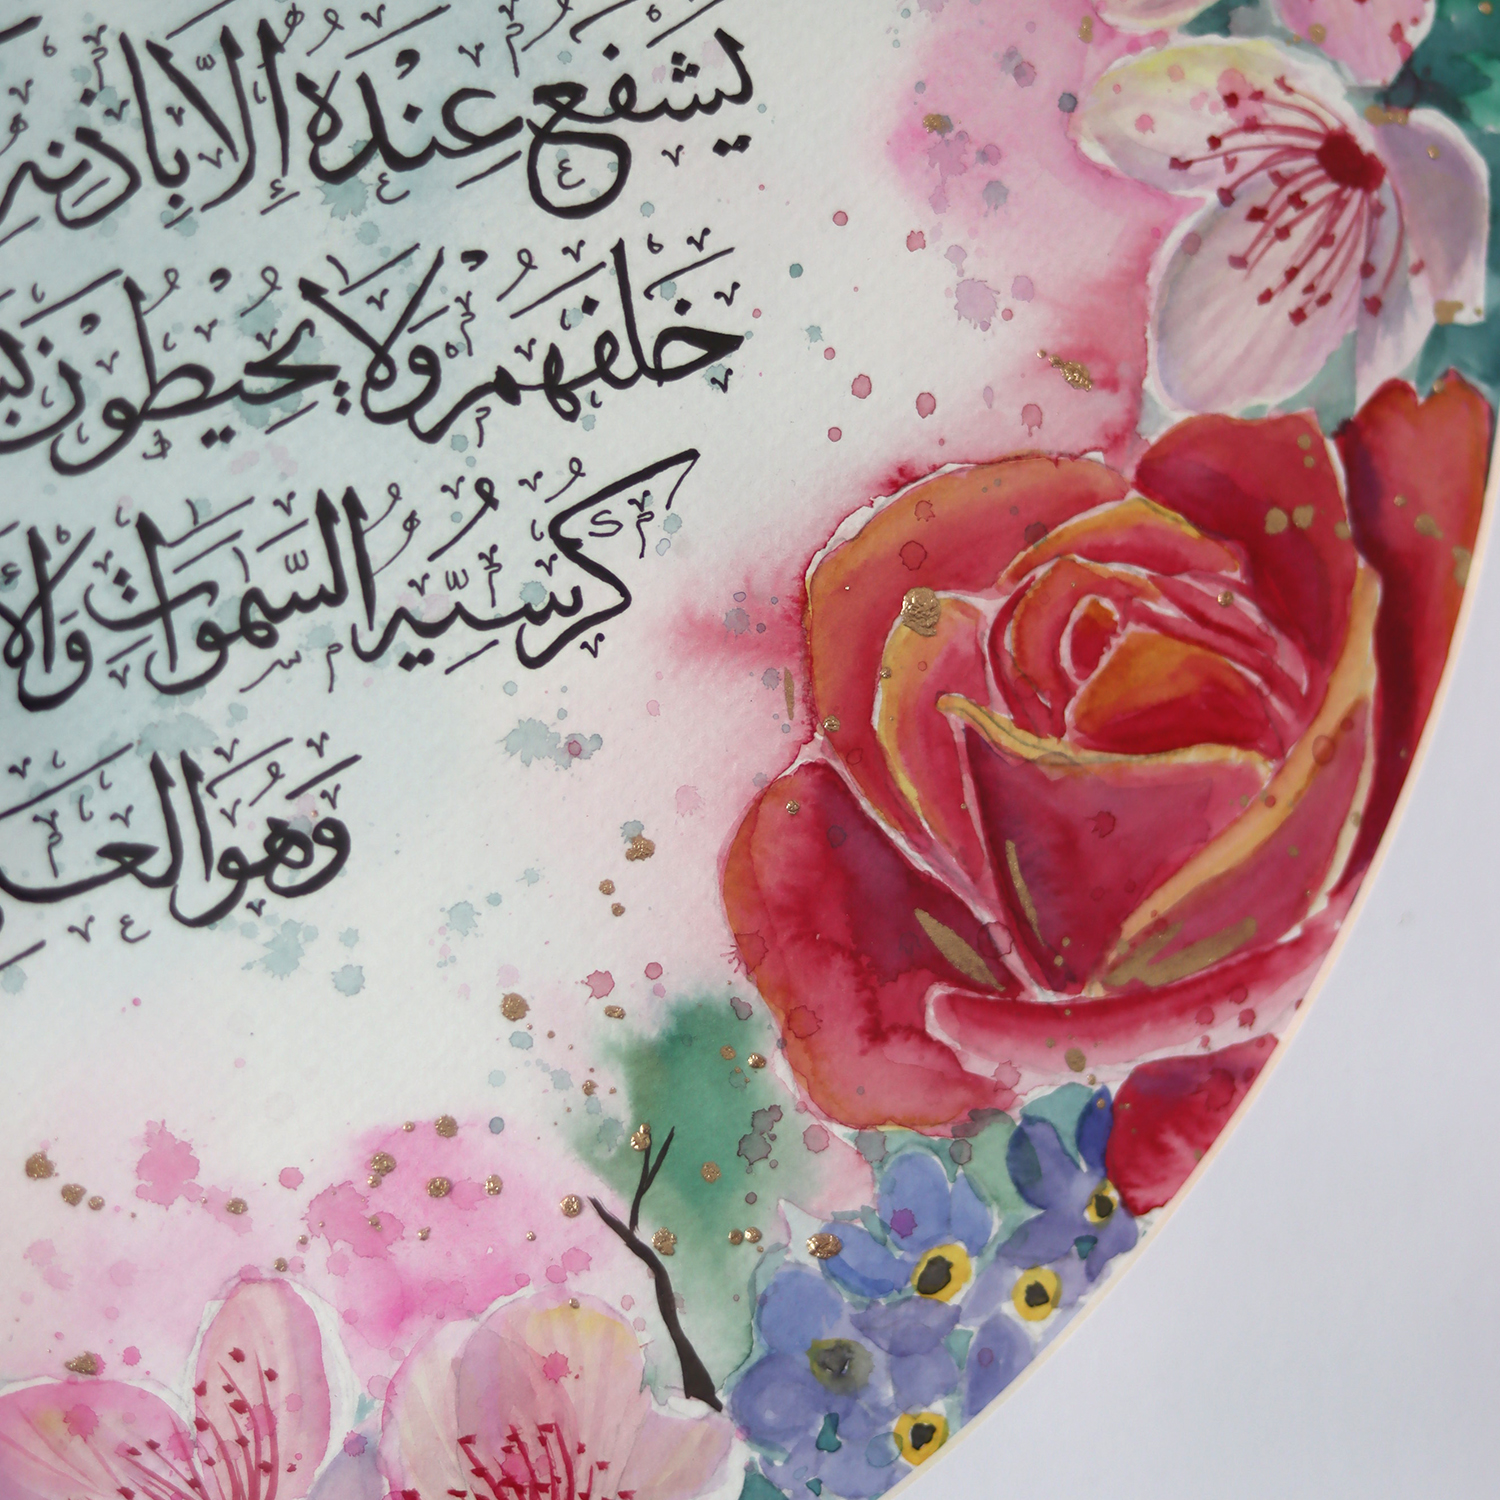 يَشْفَعُ عِنْدَهُ إِلَّا بِإِذْنِهِ
خَلْفَهُمْ وَلَا يُحِيطُونَ
كُرْسِيُّهُ السَّمَوَاتِ وَالْأَ
وَهُوَ الْعَ